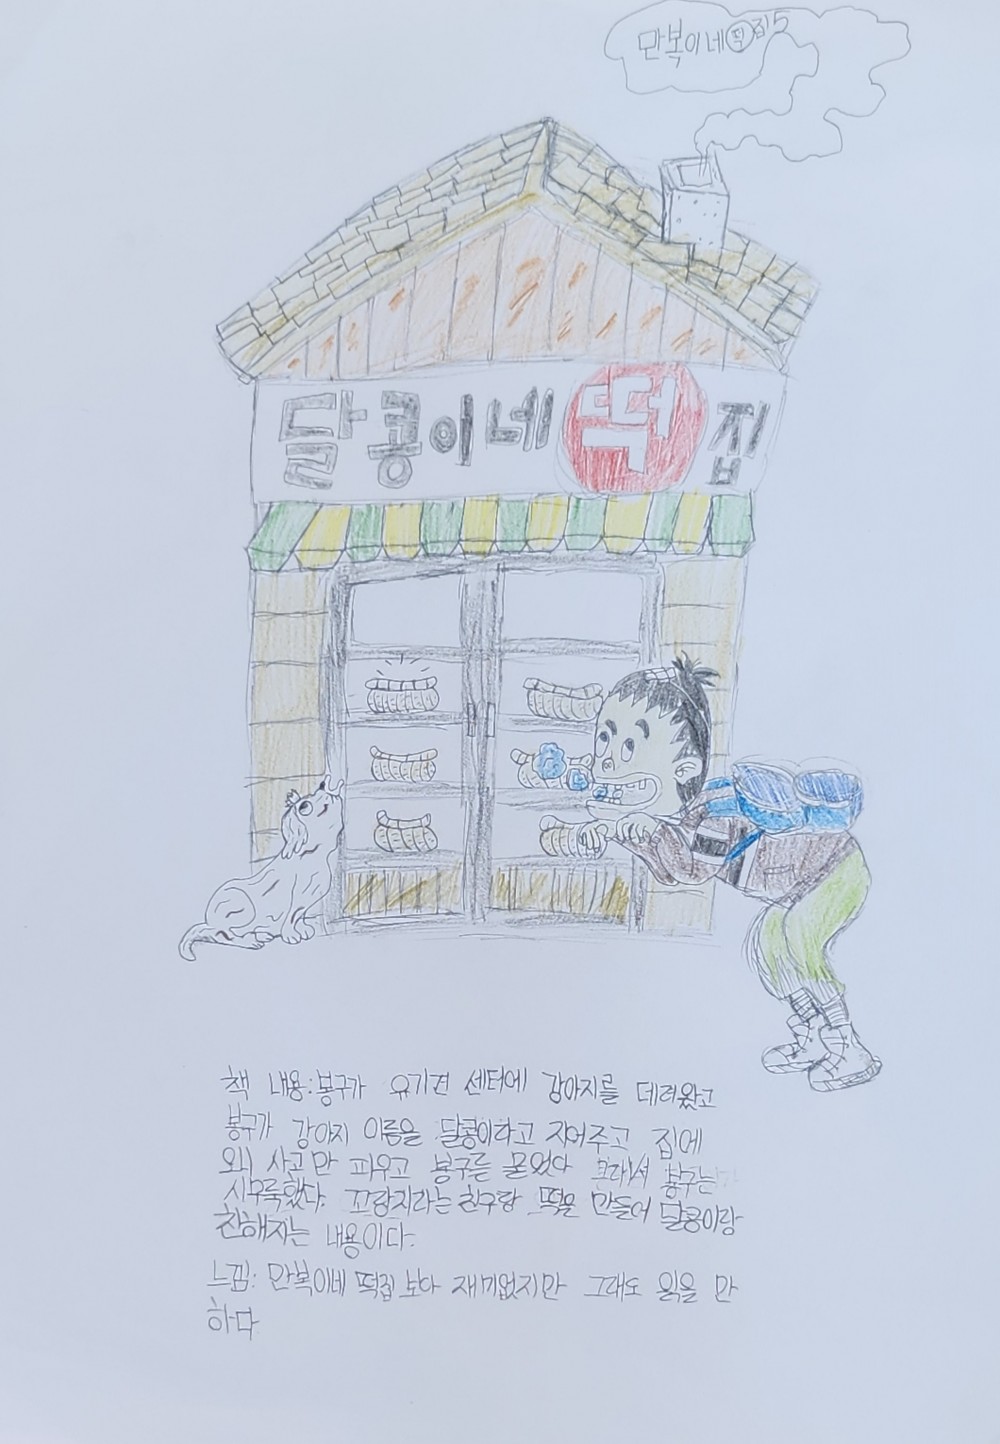 만복이네 떡 집 5
달콩이네 떡 집
책 내용: 봉구가 유기견 센터에 강아지를 데려왔고
봉구가 강아지 이름을 달콩이하고 지어주고 집에
와 사고만 피우고 봉구를 물었다 그래서 봉구는
시무룩했다. 꼬랑지라는 친구랑 떡을 만들어 달콩이랑
친해지는 내용이다.
느낌: 만복이네 떡집 보다 재미없지만 그래도 읽을 만
하다